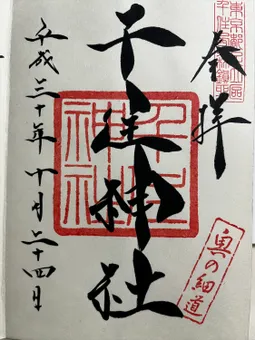 東京都足立区
奉拝
千住神社
千住
神社
奥の細道
平成三十年十月二十四日